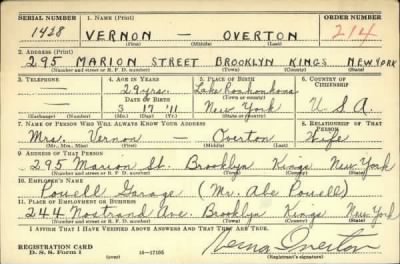 SERIAL NUMBER 1. NAME (Print) ORDER NUMBER
1428 VERNON — OVERTON 214
(First) (Middle) (Last)
2. ADDRESS (Print)
295 MARION STREET BROOKLYN KINGS NEW YORK
(Number and street or R. F. D. number) (Town) (County) (State)
3. TELEPHONE 4. AGE IN YEARS 5. PLACE OF BIRTH 6. COUNTRY OF CITIZENSHIP
— 29 yrs. Lake Ronkonkoma
DATE OF BIRTH (Town or county)
3 17 '11 New York U S A
(Exchange) (Number) (Mo.) (Day) (Yr.) (State or country)
7. NAME OF PERSON WHO WILL ALWAYS KNOW YOUR ADDRESS 8. RELATIONSHIP OF THAT PERSON
Mrs. Vernon — Overton Wife
(Mr., Mrs., Miss) (First) (Middle) (Last)
9. ADDRESS OF THAT PERSON
295 Marion St. Brooklyn Kings New York
(Number and street or R. F. D. number) (Town) (County) (State)
10. EMPLOYER'S NAME
Powell Garage (Mr. Abe Powell)
11. PLACE OF EMPLOYMENT OR BUSINESS
244 Nostrand Ave. Brooklyn Kings New York
(Number and street or R. F. D. number) (Town) (County) (State)
I AFFIRM THAT I HAVE VERIFIED ABOVE ANSWERS AND THAT THEY ARE TRUE.
REGISTRATION CARD
D. S. S. Form 1 (over) 16—17105 Vernon Overton
(Registrant's signature)